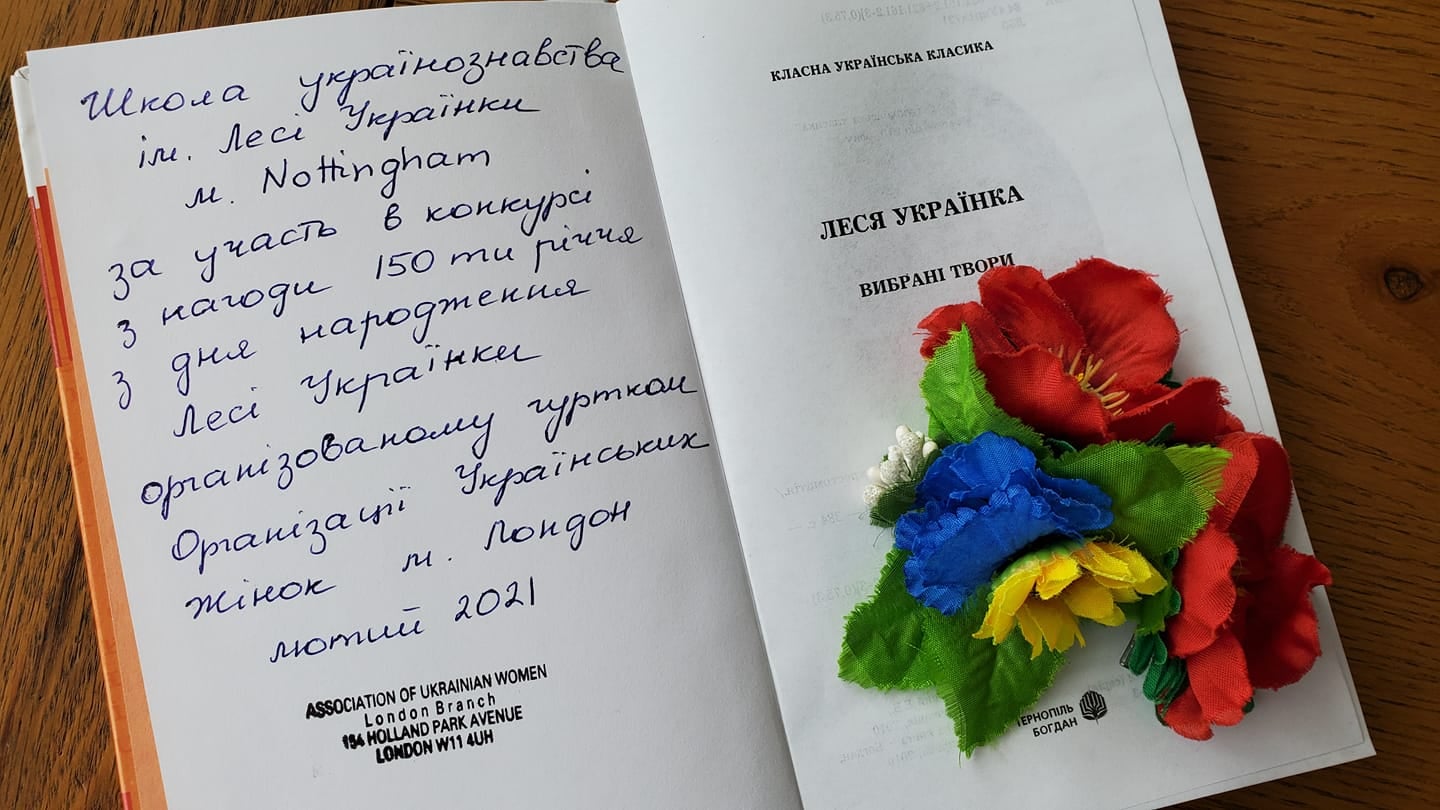 Школа українознавства
ім. Лесі Українки
м. Nottingham
за участь в конкурсі
з нагоди 150 ти річчя
з дня народження
Лесі Українки
організованому гуртком
Організації Українських
Жінок м. Лондон
лютий 2021
ASSOCIATION OF UKRAINIAN WOMEN
London Branch
154 HOLLAND PARK AVENUE
LONDON W11 4UH
КЛАСНА УКРАЇНСЬКА КЛАСИКА
ЛЕСЯ УКРАЇНКА
ВИБРАНІ ТВОРИ
ТЕРНОПІЛЬ
БОГДАН